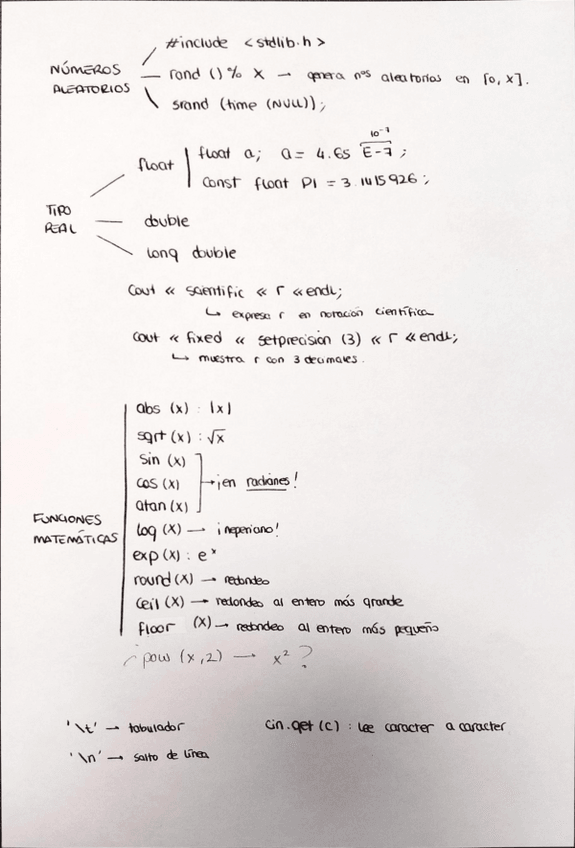 #include <stdlib.h>
NÚMEROS
ALEATORIOS
rand () % X → genera nos aleatorios en [0, X].
srand (time (NULL));
float
float a; a = 4.65 E-7;
10⁻⁷
const float PI = 3.1415926;
TIPO
REAL
double
long double
cout << scientific << r << endl;
↳ expresa r en notación científica
cout << fixed << setprecision (3) << r << endl;
↳ muestra r con 3 decimales.
abs (x) : |x|
sqrt (x) : √x
sin (x)
cos (x) → ¡en radianes!
atan (x)
FUNCIONES
MATEMÁTICAS
log (x) → ¡neperiano!
exp (x) : eˣ
round (x) → redondeo
ceil (x) → redondeo al entero más grande
floor (x) → redondeo al entero más pequeño
¿pow (x,2) → x²?
'\t' → tabulador
cin.get (c) : lee caracter a caracter
'\n' → salto de línea